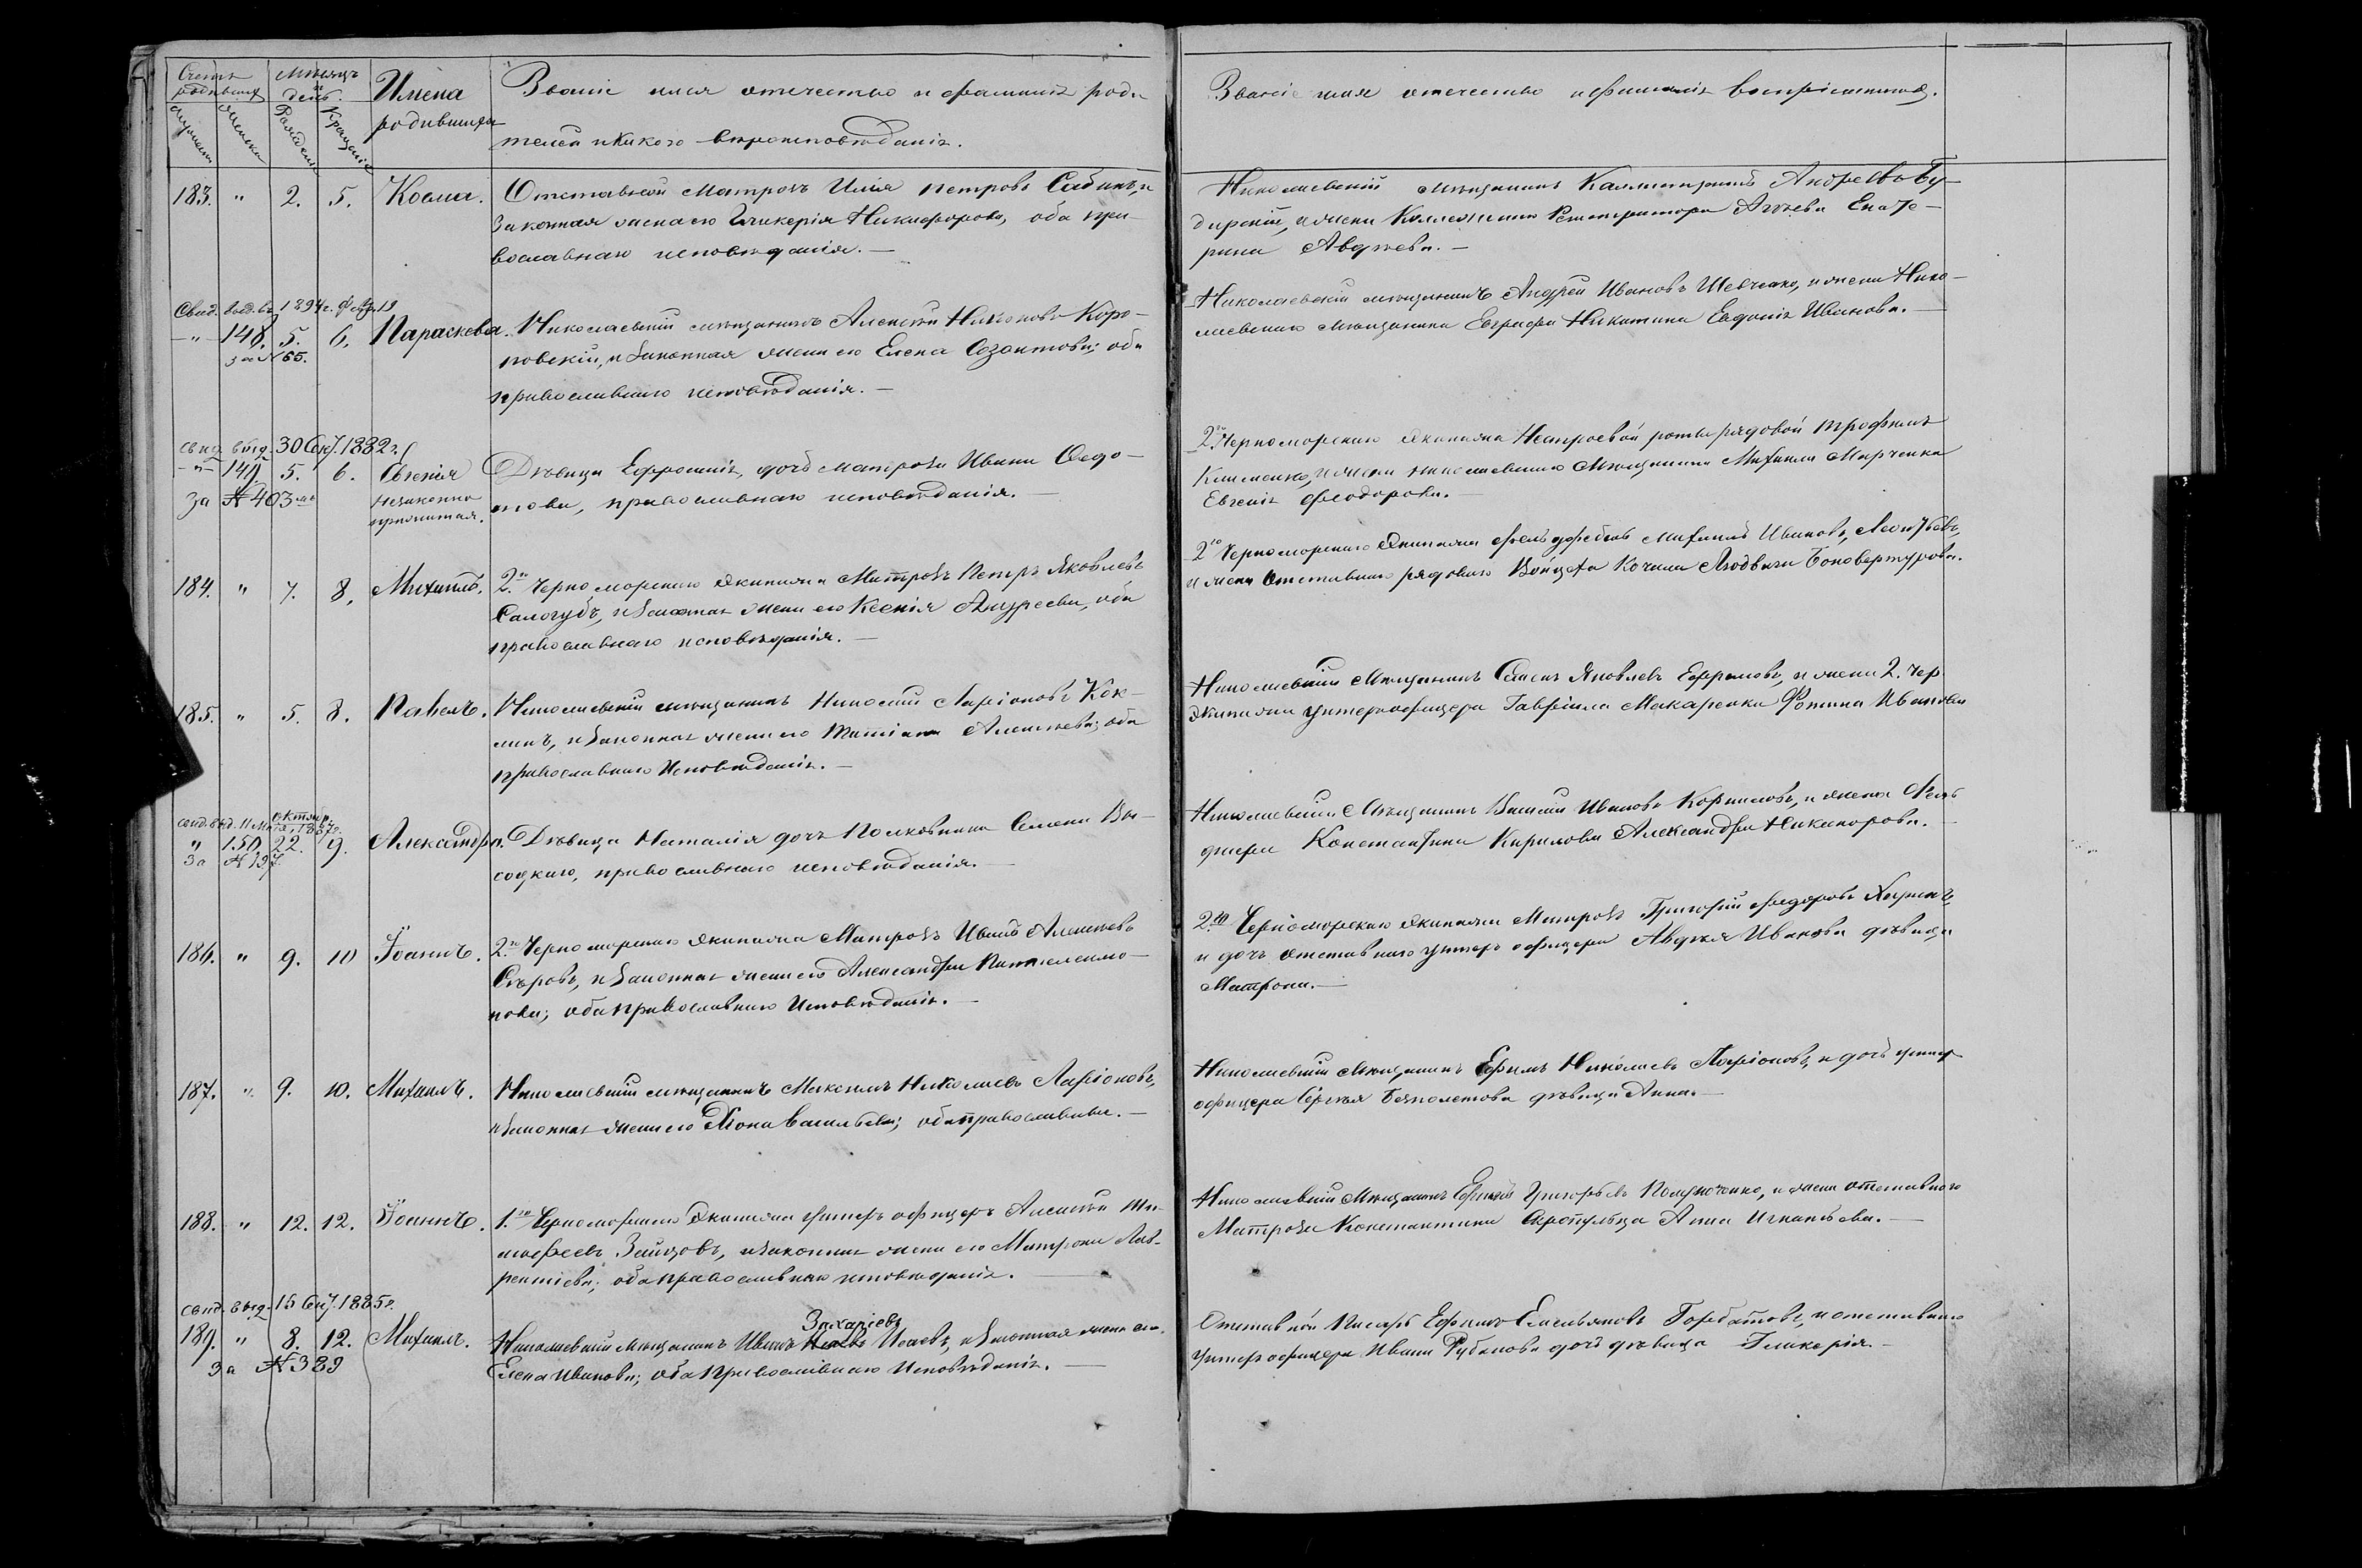 Счетъ родившихся
Мѣсяцъ и день
Имена родившихся
Званіе имя отечество и фамилія роди
телей и какого вѣроисповѣданія.
Мужеска
Женска
Рожденія
Крещенія
Званіе имя отечество и фамилія воспріемниковъ.
183. " 2. 5. Косма.
Отставной Матрозъ Илія Петровъ Сабинъ, и
законная жена его Гликерія Никифорова, оба пра-
вославнаго исповѣданія. —
Николаевскій мѣщанинъ Каллистратъ Андреевъ Бу-
дирскій, и жена Коллежскаго Регистратора Агѣева Екате-
рина Авдѣева. —
Свид. выд. въ 1894 г. Февр. 19
— " — 148. 5. 6. Параскева.
за № 65.
Николаевскій мѣщанинъ Алексѣй Никоновъ Коро-
повскій, и законная жена его Елена Созонтова; оба
православнаго исповѣданія. —
Николаевскій мѣщанинъ Андрей Ивановъ Шевченко, и жена Нико-
лаевскаго мѣщанина Евграфа Никитина Евдокія Иванова. —
свид. выд. 30 Сент. 1882 г.
— " — 149. 5. 6. Евгенія
за № 403мъ
незаконно
прижитая.
Дѣвица Ефросинія, дочь матроза Ивана Федо-
това, православнаго исповѣданія. —
2го Черноморскаго Экипажа Нестроевой роты рядовой Трофимъ
Клименко, и жена николаевскаго Мѣщанина Михаила Марченка
Евгенія Феодорова. —
184. " 7. 8. Михаилъ.
2го Черноморскаго Экипажа Матрозъ Петръ Яковлевъ
Сологубъ, и законная жена его Ксенія Андреева, оба
православнаго исповѣданія. —
2го Черноморскаго Экипажа фельдфебель Михаилъ Ивановъ Леонтьевъ,
и жена Отставнаго рядоваго Войцеха Кочана Людвига Боновертурова.
185. " 5. 8. Павелъ.
Николаевскій мѣщанинъ Николай Ларіоновъ Кок-
линъ, и законная жена его Татіана Алексѣева; оба
православнаго Исповѣданія. —
Николаевскій Мѣщанинъ Семенъ Яковлевъ Ефремовъ, и жена 2. Чер.
Экипажа унтерофицера Гавріила Макаренка Фотина Иванова
свид. выд. 11 октябр. 1887 г.
" 150. 22. 9. Александра.
за № 397
Дѣвица Наталія дочь Полковника Семена Вы-
соцкаго, православнаго исповѣданія. —
Николаевскій Мѣщанинъ Василій Ивановъ Корниловъ, и жена Фель
дшера Константина Кирилова Александра Никанорова. —
186. " 9. 10 Іоаннъ.
2го Черноморскаго Экипажа Матрозъ Иванъ Алексѣевъ
Сѣровъ, и законная жена его Александра Пантелеимо-
нова; оба православнаго Исповѣданія. —
2го Черноморскаго Экипажа Матрозъ Григорій Федоровъ
и дочь отставнаго унтеръ офицера Авдѣя Иванова дѣвица
Матрона. —
187. " 9. 10. Михаилъ.
Николаевскій мѣщанинъ Максимъ Николаевъ Ларіоновъ,
и законная жена его Васильева; оба православные. —
Николаевскій Мѣщанинъ Ефимъ Николаевъ Ларіоновъ, и дочь унтеръ
офицера Сергѣя Безполетова дѣвица Анна. —
188. " 12. 12. Іоаннъ.
1го Черноморскаго Экипажа унтеръ офицеръ Алексѣй Ти-
мофеевъ Зайцовъ, и законная жена его Матрона Лав-
рентіева; оба православнаго исповѣданія. —
Николаевскій Мѣщанинъ Григорьевъ и жена отставнаго
Матроза Константина Анна Игнатьева. —
свид. выд. 15 Сент. 1885 г.
189. " 8. 12. Михаилъ.
за № 389
Захаріевъ
Николаевскій Мѣщанинъ Иванъ Исаевъ, и законная жена его
Елена Иванова; оба Православнаго Исповѣданія. —
Отставной Писарь Ефимъ Емельяновъ Горбатовъ, и отставнаго
Унтеръ офицера Ивана Рубанова дочь дѣвица Гликерія. —